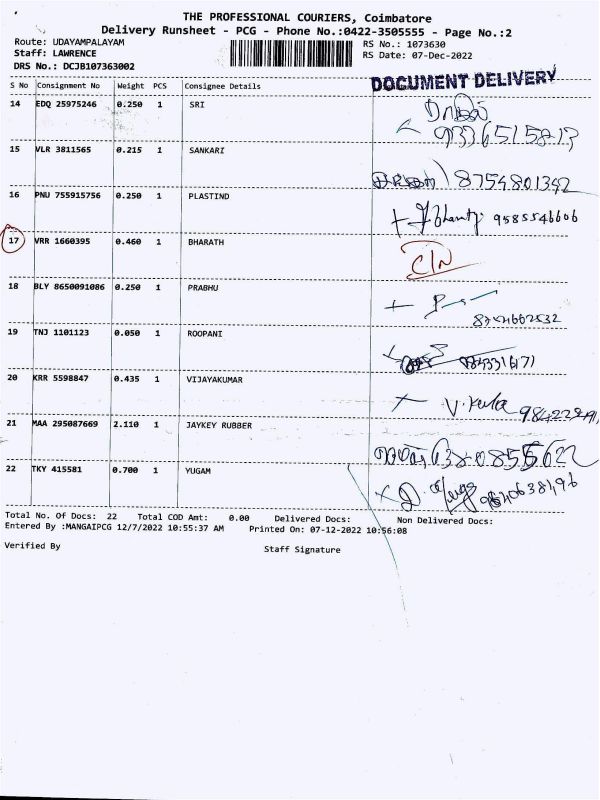 THE PROFESSIONAL COURIERS, Coimbatore
Delivery Runsheet - PCG - Phone No.:0422-3505555 - Page No.:2
Route: UDAYAMPALAYAM
RS No.: 1073630
Staff: LAWRENCE
RS Date: 07-Dec-2022
DRS No.: DCJB107363002
DOCUMENT DELIVERY
S No Consignment No Weight PCS Consignee Details
14 EDQ 25975246 0.250 1 SRI
15 VLR 3811565 0.215 1 SANKARI
8754801342
16 PNU 755915756 0.250 1 PLASTIND
9585546606
17 VRR 1660395 0.460 1 BHARATH
CIN
18 BLY 8650091086 0.250 1 PRABHU
19 TNJ 1101123 0.050 1 ROOPANI
20 KRR 5598847 0.435 1 VIJAYAKUMAR
21 MAA 295087669 2.110 1 JAYKEY RUBBER
22 TKY 415581 0.700 1 YUGAM
Total No. Of Docs: 22 Total COD Amt: 0.00 Delivered Docs: Non Delivered Docs:
Entered By :MANGAIPCG 12/7/2022 10:55:37 AM Printed On: 07-12-2022 10:56:08
Verified By Staff Signature